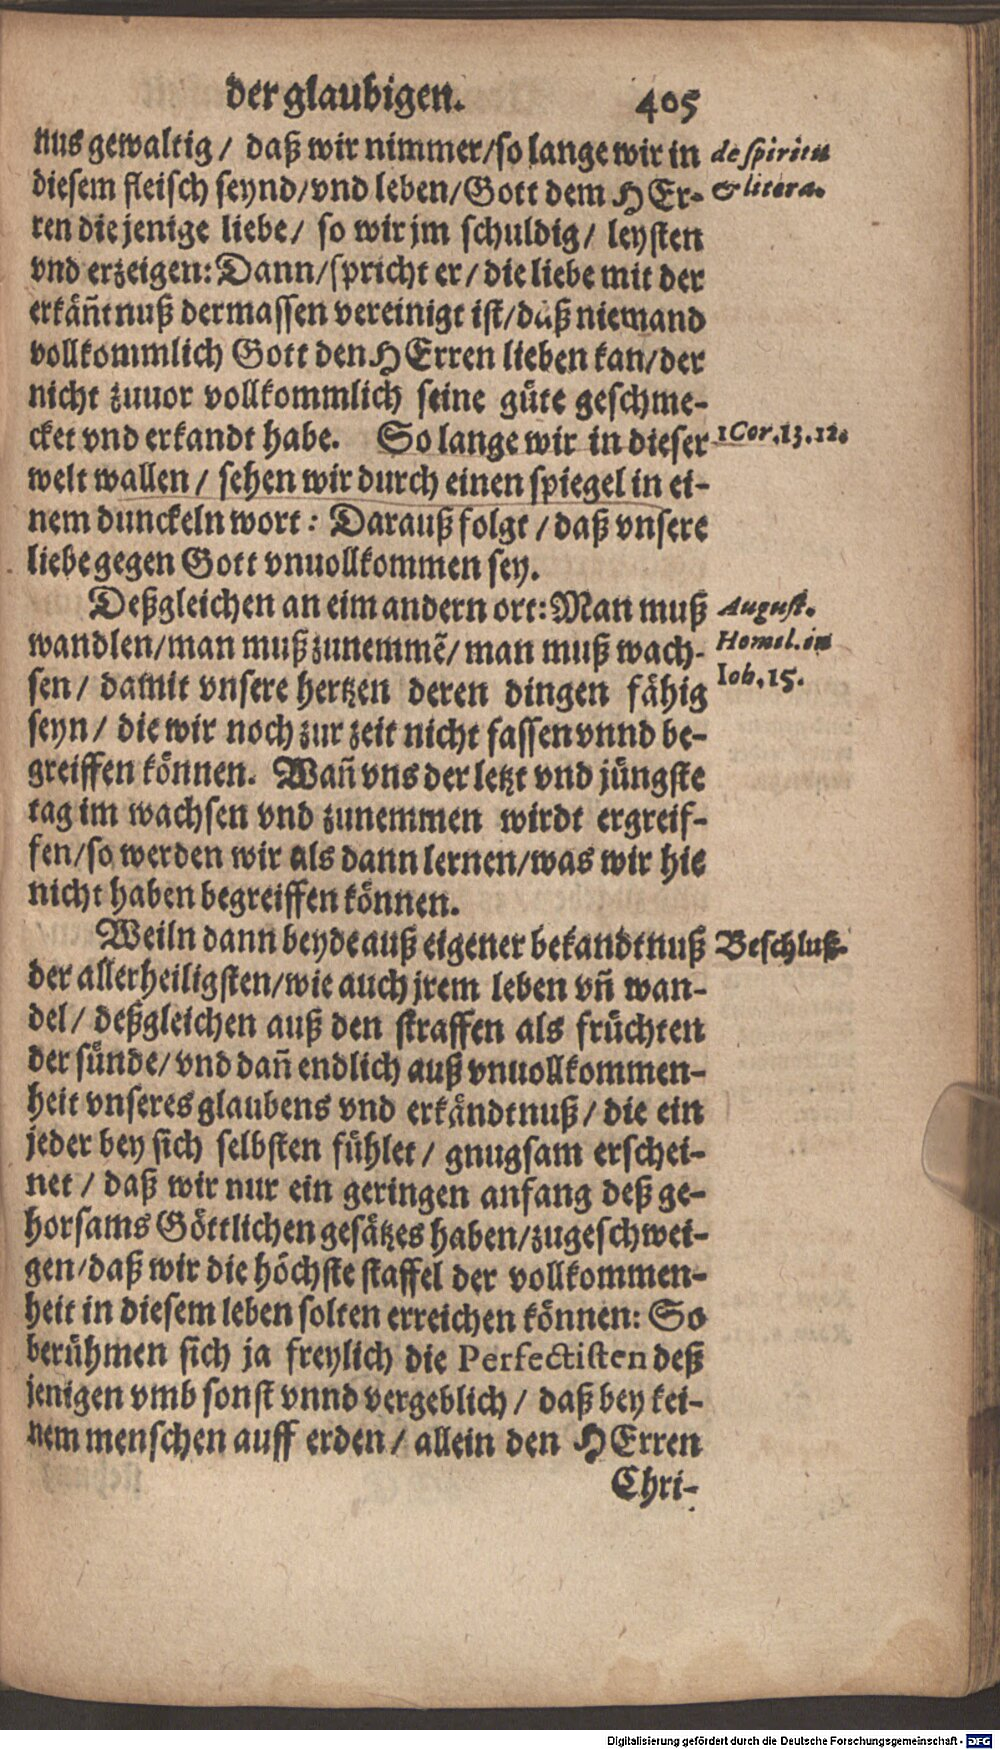 der glaubigen. 405
nus gewaltig / daß wir nimmer/so lange wir in
diesem fleisch seynd/vnd leben/Gott dem HEr-
ren die jenige liebe / so wir jm schuldig / leysten
vnd erzeigen: Dann/spricht er / die liebe mit der
erkäñtnuß dermassen vereinigt ist/daß niemand
vollkommlich Gott den HErren lieben kan/der
nicht zuuor vollkommlich seine güte geschme-
cket vnd erkandt habe. So lange wir in dieser
welt wallen / sehen wir durch einen spiegel in ei-
nem dunckeln wort: Darauß folgt / daß vnsere
liebe gegen Gott vnuollkommen sey.
Deßgleichen an eim andern ort: Man muß
wandlen/man muß zunemmẽ/ man muß wach-
sen / damit vnsere hertzen deren dingen fähig
seyn / die wir noch zur zeit nicht fassen vnnd be-
greiffen können. Wañ vns der letzt vnd jüngste
tag im wachsen vnd zunemmen wirdt ergreif-
fen/so werden wir als dann lernen/was wir hie
nicht haben begreiffen können.
Weiln dann beyde auß eigener bekandtnuß
der allerheiligsten/wie auch jrem leben vñ wan-
del / deßgleichen auß den straffen als früchten
der sünde/ vnd dañ endlich auß vnuollkommen-
heit vnseres glaubens vnd erkändtnuß / die ein
jeder bey sich selbsten fühlet / gnugsam erschei-
net / daß wir nur ein geringen anfang deß ge-
horsams Göttlichen gesätzes haben/zugeschwei-
gen/daß wir die höchste staffel der vollkommen-
heit in diesem leben solten erreichen können: So
berühmen sich ja freylich die Perfectisten deß
jenigen vmb sonst vnnd vergeblich / daß bey kei-
nem menschen auff erden / allein den HErren
Chri-
de spiritu
& litera.
1 Cor. 13. 12.
August.
Homel. in
Ioh. 15.
Beschluß.
Digitalisierung gefördert durch die Deutsche Forschungsgemeinschaft - DFG